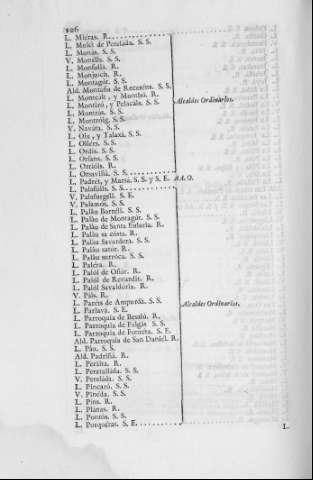 106
L. Mieras. R.
L. Molét de Peralada. S. S.
L. Monás. S. S.
V. Monélls. S. S.
L. Monfullá. R.
L. Monjuich. R.
L. Montagút. S. S.
Ald. Montañá de Recaséns. S. S.
L. Montcál, y Montbó. R.
L. Montiró, y Pelacáls. S. S.
L. Montrás. S. S.
L. Montróig. S. S.
V. Naváta. S. S.
L. Oix, y Talaxá. S. S.
L. Ollérs. S. S.
L. Ordis. S. S.
L. Orfans. S. S.
L. Orriols. R.
L. Orsavíñá. S. S.
Alcaldes Ordinarios.
L. Padrét, y Marsá. S. S. y S. E. A. O.
L. Palafólls. S. S.
V. Palafurgéll. S. E.
V. Palamós. S. S.
L. Paláu Borréll. S. S.
L. Paláu de Montagút. S. S.
L. Paláu de Santa Eulária. R.
L. Paláu sa costa. R.
L. Paláu Savardera. S. S.
L. Paláu satór. R.
L. Paláu surróca. S. S.
L. Paléra. R.
L. Palól de Oñár. R.
L. Palól de Revardít. R.
L. Palól Sevaldoria. R.
V. Páls. R.
L. Parets de Ampurdá. S. S.
L. Parlavá. S. E.
L. Parroquia de Besalú. R.
L. Parroquia de Falgás S. S.
L. Parroquia de Fornélls. S. E.
Ald. Parroquia de San Daniél. R.
L. Páu. S. S.
Ald. Padriñá. R.
L. Perálta. R.
L. Peratalláda. S. S.
V. Peraláda. S. S.
L. Pincaró. S. S.
V. Pinéda. S. S.
L. Pins. R.
L. Planas. R.
L. Pontós. S. S.
L. Porquéras. S. E.
Alcaldes Ordinarios.
L.